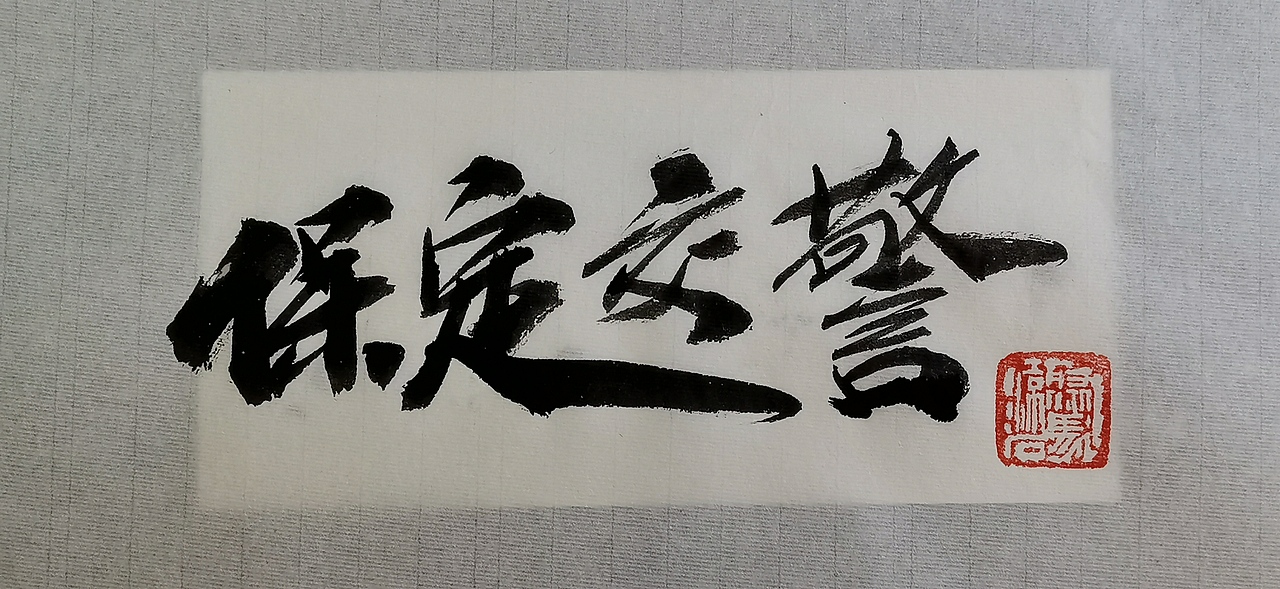 保定交警